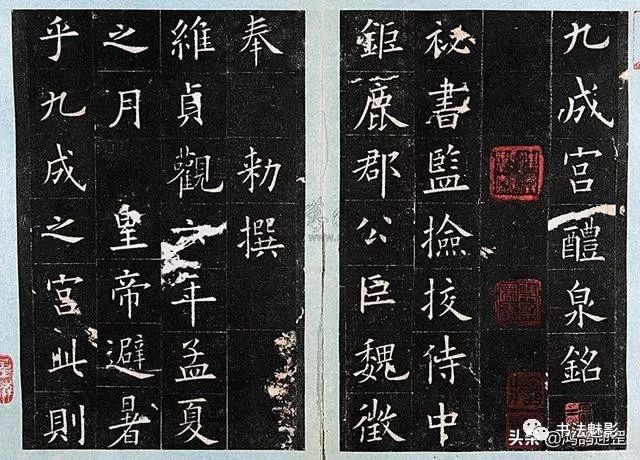 九成宮醴泉銘
祕書監撿挍侍中
鉅鹿郡公臣魏徵
奉 勑撰
維貞觀六年孟夏
之月 皇帝避暑
乎九成之宮此則
书法魅影
头条@